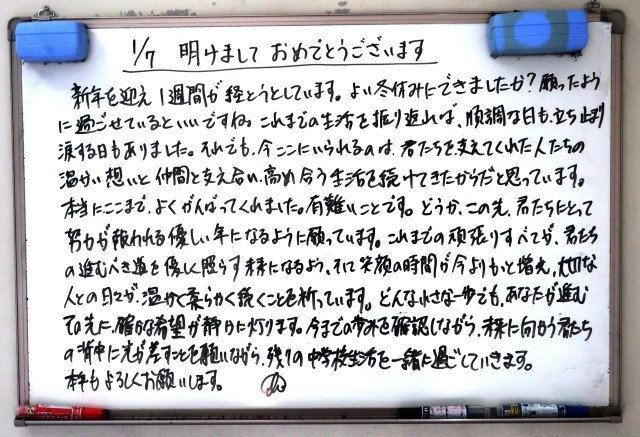 1/7 明けまして おめでとうございます
新年を迎え1週間が経とうとしています。よい冬休みにできましたか?願ったよう
に過ごせているといいですね。これまでの生活を振り返れば、順調な日も、立ち止まり
涙する日もありました。それでも、今ここにいられるのは、君たちを支えてくれた人たちの
温かい想いと仲間と支え合い、高め合う生活を続けてきたからだと思っています。
本当にここまで、よくがんばってくれました。有難いことです。どうか、この先、君たちにとって
努力が報われる優しい年になるように願っています。これまでの頑張りすべてが、君たち
の進むべき道を優しく照らす未来になるよう、そして笑顔の時間が今よりもっと増え、大切な
人との日々が、温かく柔らかく続くことを祈っています。どんな小さな一歩でも、あなたが進む
その先に、確かな希望が静かに灯ります。今までの歩みを確認しながら、未来に向かう君たち
の背中に光が差すことを願いながら、残りの中学校生活を一緒に過ごしていきます。
本年もよろしくお願いします。